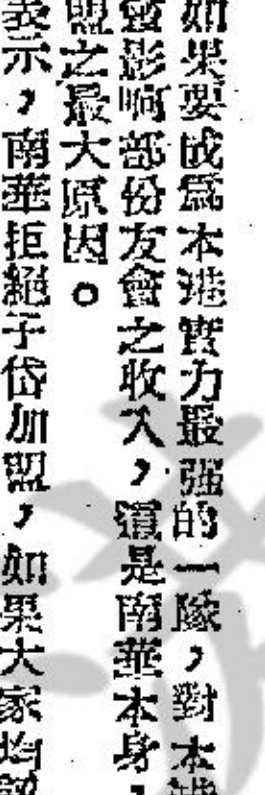 如果要成爲本港實力最强的一隊，對本
會影响部份友會之收入，這是南華本身，
盟之最大原因。
表示，南華拒絕子岱加盟，如果大家均